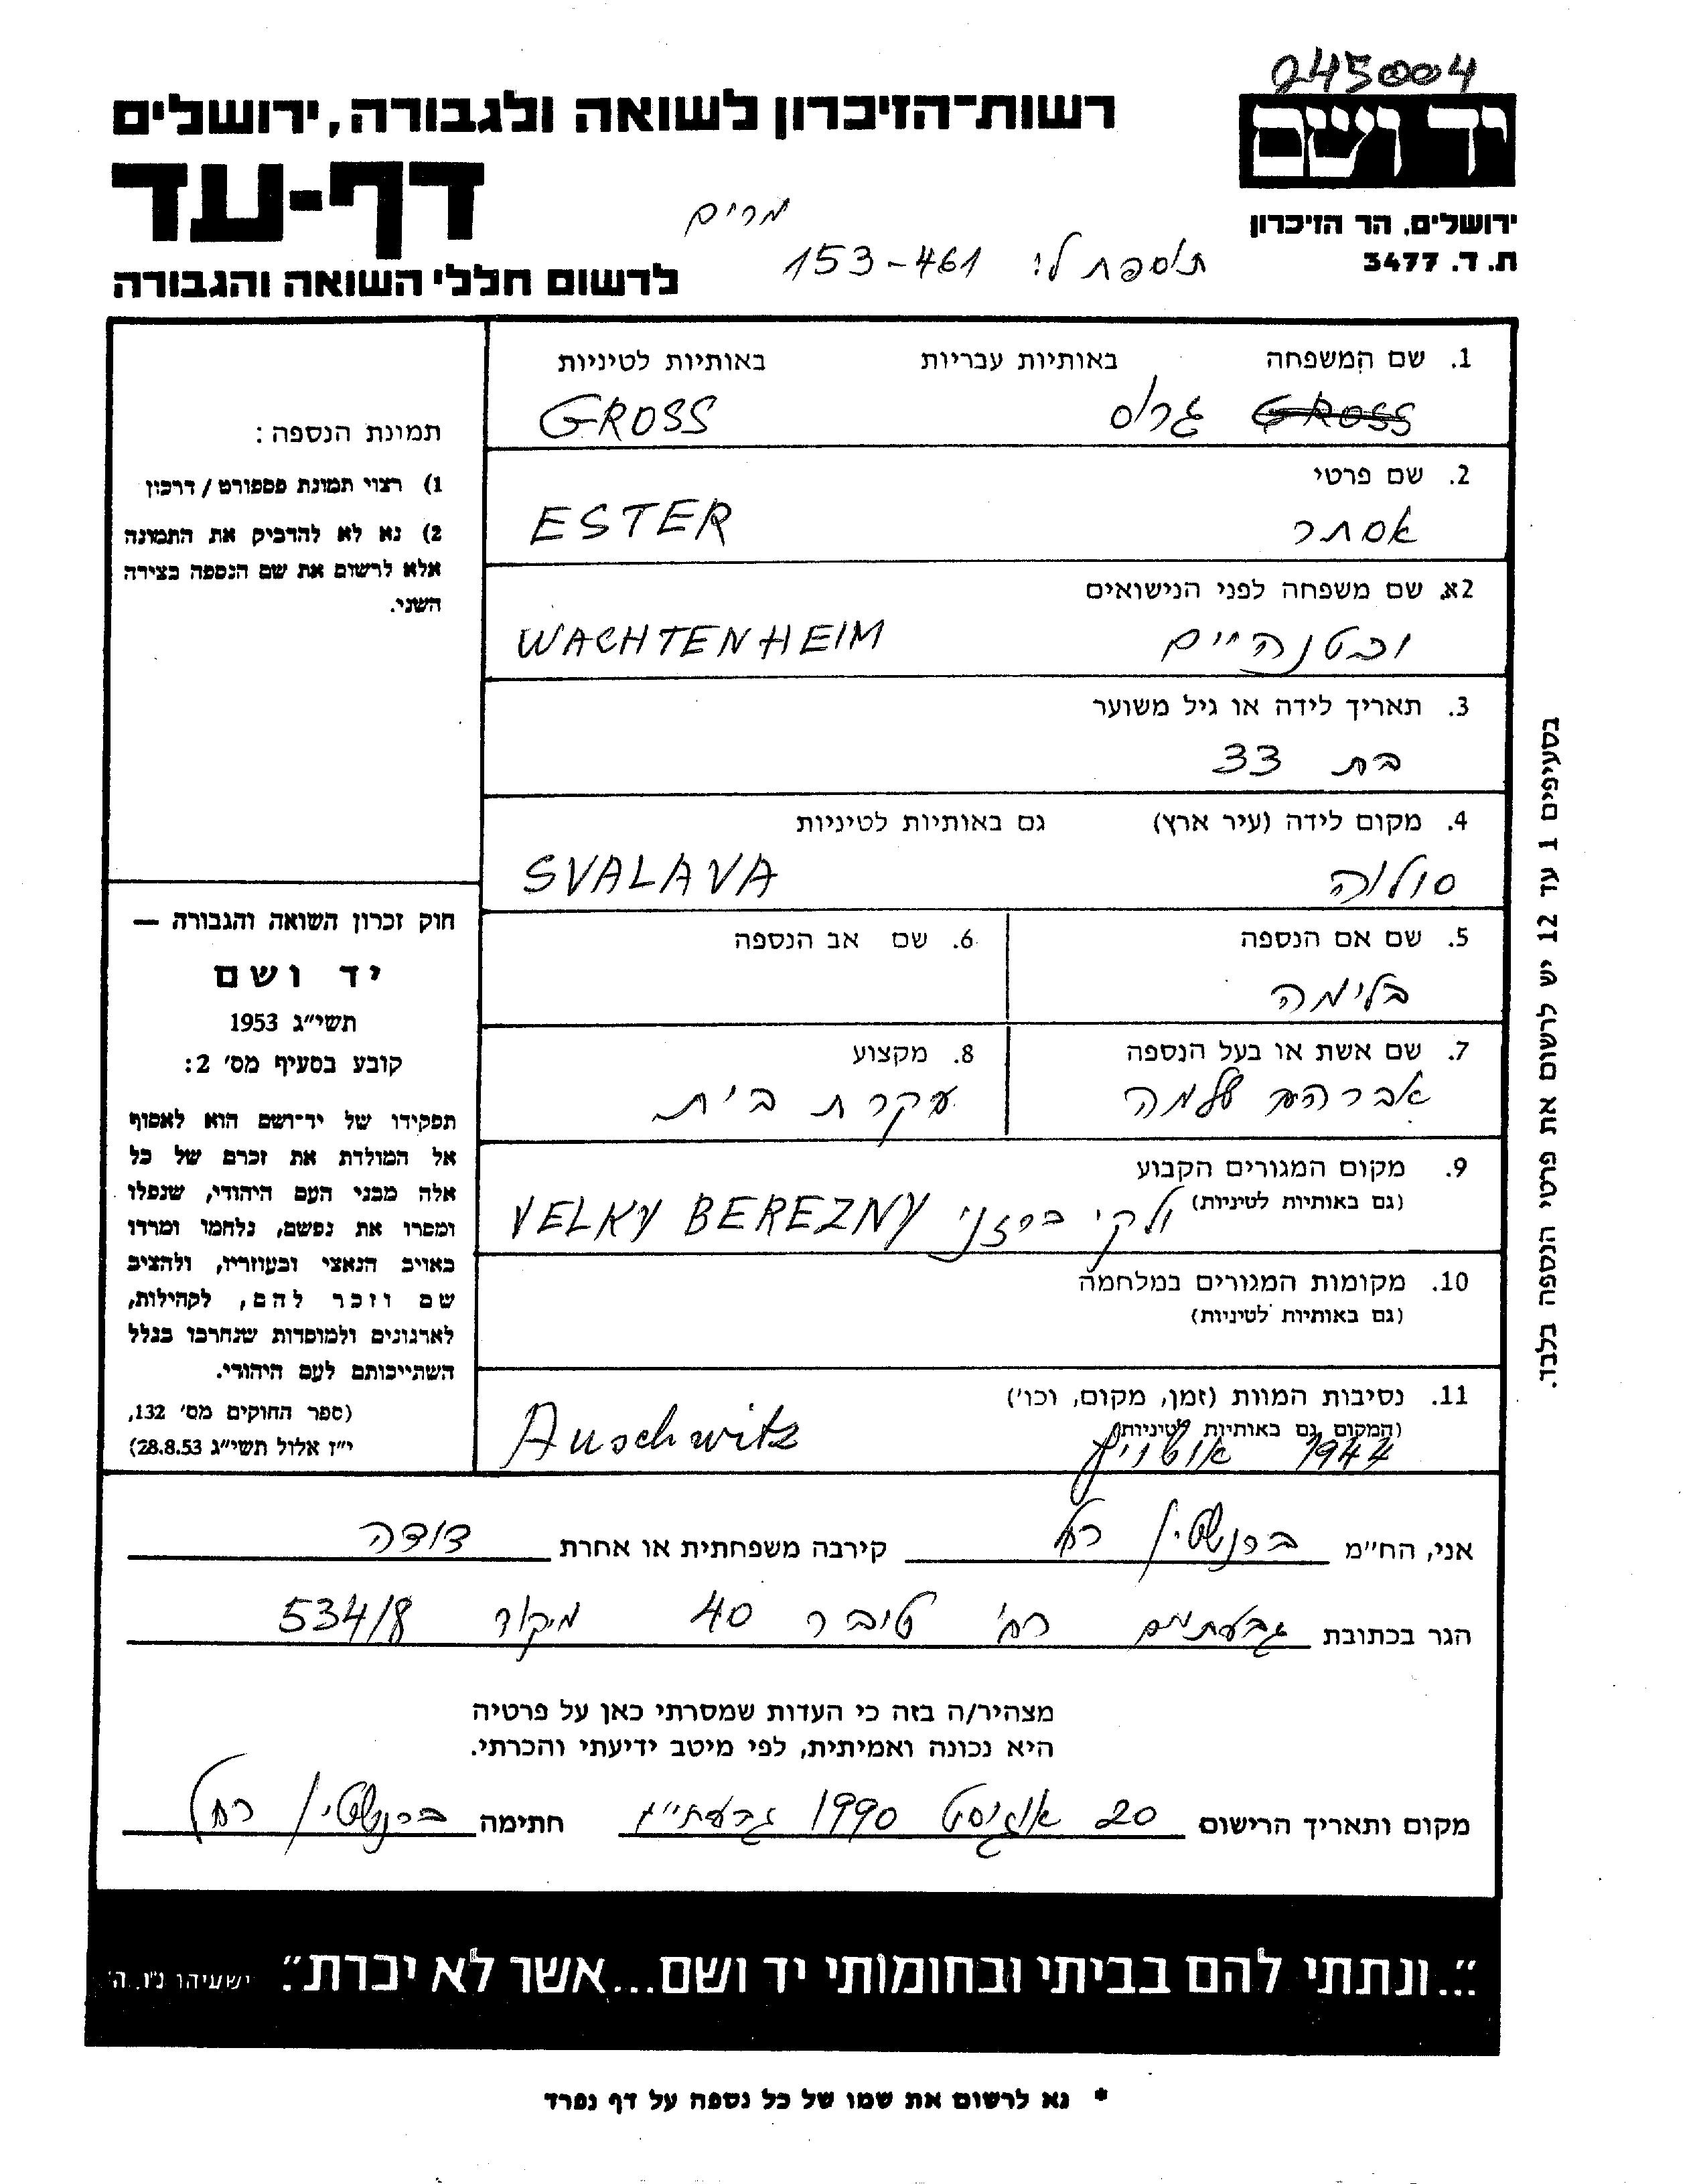 245004
יד ושם
ירושלים, הר הזיכרון
ת. ד. 3477
רשות־הזיכרון לשואה ולגבורה, ירושלים
דף-עד
מרים
תוספת ל: 153-461
לרשום חללי השואה והגבורה
1. שם המשפחה באותיות עבריות באותיות לטיניות
GROSS גרוס GROSS
2. שם פרטי
אסתר ESTER
2א. שם משפחה לפני הנישואים
וכטנהיים WACHTENHEIM
3. תאריך לידה או גיל משוער
בת 33
4. מקום לידה (עיר ארץ) גם באותיות לטיניות
סולוה SVALAVA
5. שם אם הנספה 6. שם אב הנספה
בלימה
7. שם אשת או בעל הנספה 8. מקצוע
אברהם שלמה עקרת בית
9. מקום המגורים הקבוע
(גם באותיות לטיניות) ולקי ברזני VELKY BEREZNY
10. מקומות המגורים במלחמה
(גם באותיות לטיניות)
11. נסיבות המוות (זמן, מקום, וכו')
(המקום גם באותיות לטיניות)
1944 אושויץ Auschwitz
תמונת הנספה:
1) רצוי תמונת פספורט / דרכון
2) נא לא להדביק את התמונה
אלא לרשום את שם הנספה בצידה
השני.
חוק זכרון השואה והגבורה —
יד ושם
תשי"ג 1953
קובע בסעיף מס' 2:
תפקידו של יד־ושם הוא לאסוף
אל המולדת את זכרם של כל
אלה מבני העם היהודי, שנפלו
ומסרו את נפשם, נלחמו ומרדו
באויב הנאצי ובעוזריו, ולהציב
שם וזכר להם, לקהילות,
לארגונים ולמוסדות שנחרבו בגלל
השתייכותם לעם היהודי.
(ספר החוקים מס' 132,
י"ז אלול תשי"ג 28.8.53)
בסעיפים 1 עד 12 יש לרשום את פרטי הנספה בלבד.
אני, הח"מ ברנשטיין רחל קירבה משפחתית או אחרת דודה
הגר בכתובת גבעתיים רח' טיבר 40 מיקוד 534/8
מצהיר/ה בזה כי העדות שמסרתי כאן על פרטיה
היא נכונה ואמיתית, לפי מיטב ידיעתי והכרתי.
מקום ותאריך הרישום 20 אוגוסט 1990 חתימה ברנשטיין רחל
"...ונתתי להם בביתי ובחומותי יד ושם...אשר לא יכרת". ישעיהו נ"ו, ה'
* נא לרשום את שמו של כל נספה על דף נפרד